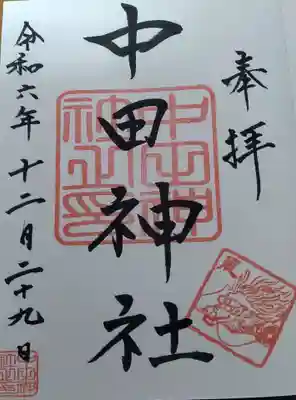 奉拝
中田神社
令和六年十二月二十九日